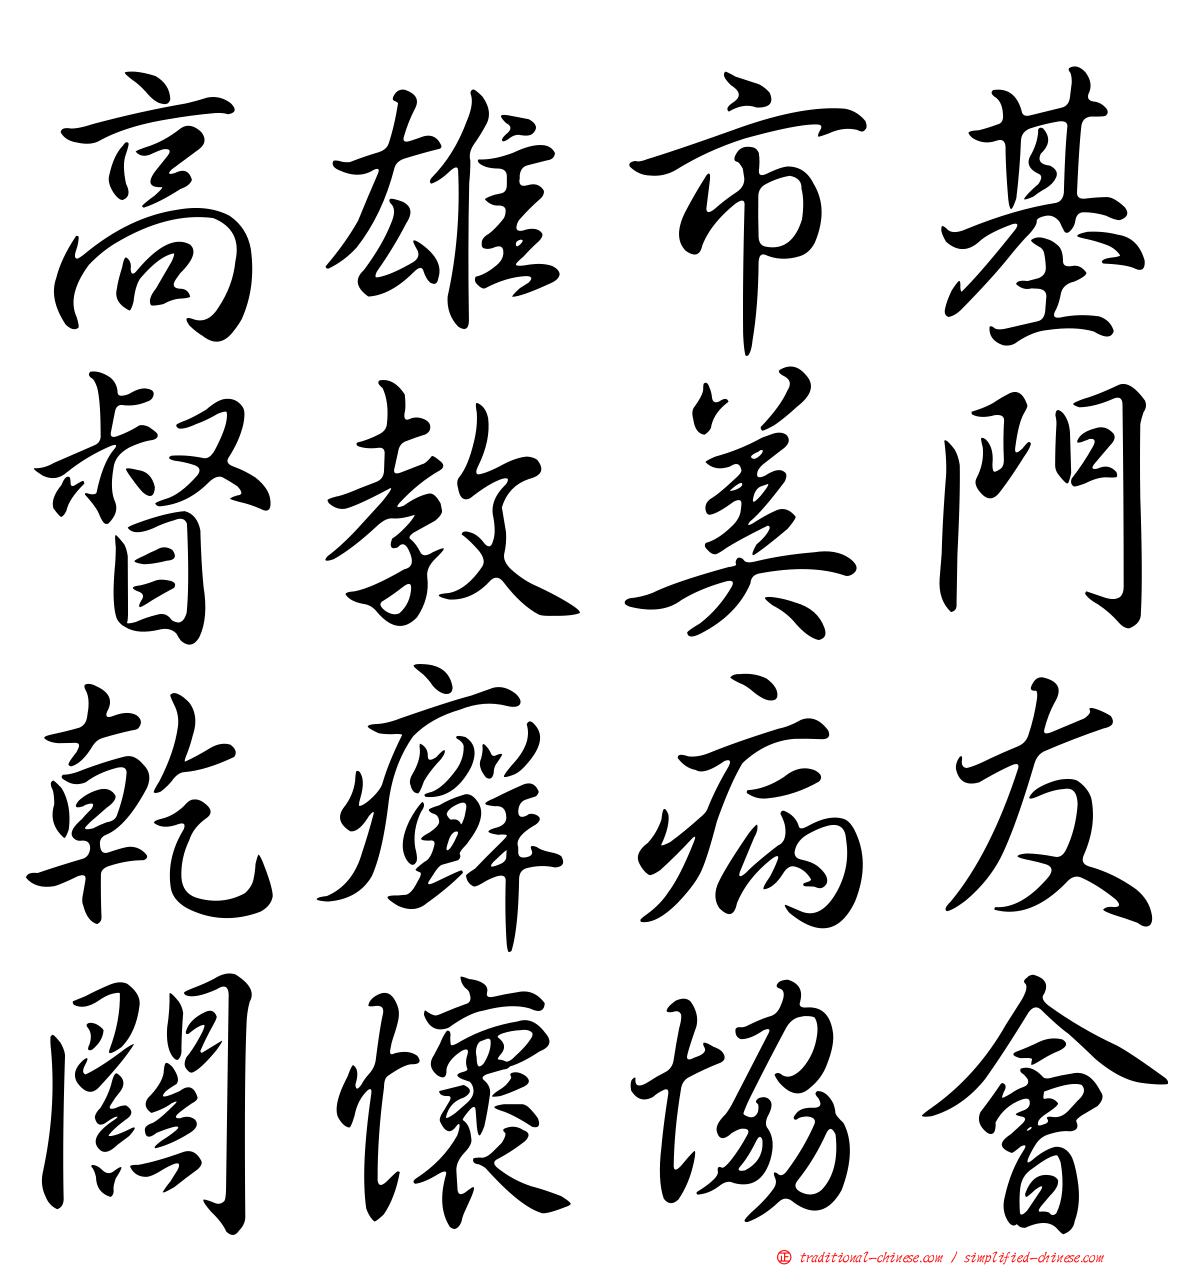 高雄市基
督教美門
乾癬病友
關懷協會
正 traditional-chinese.com / simplified-chinese.com